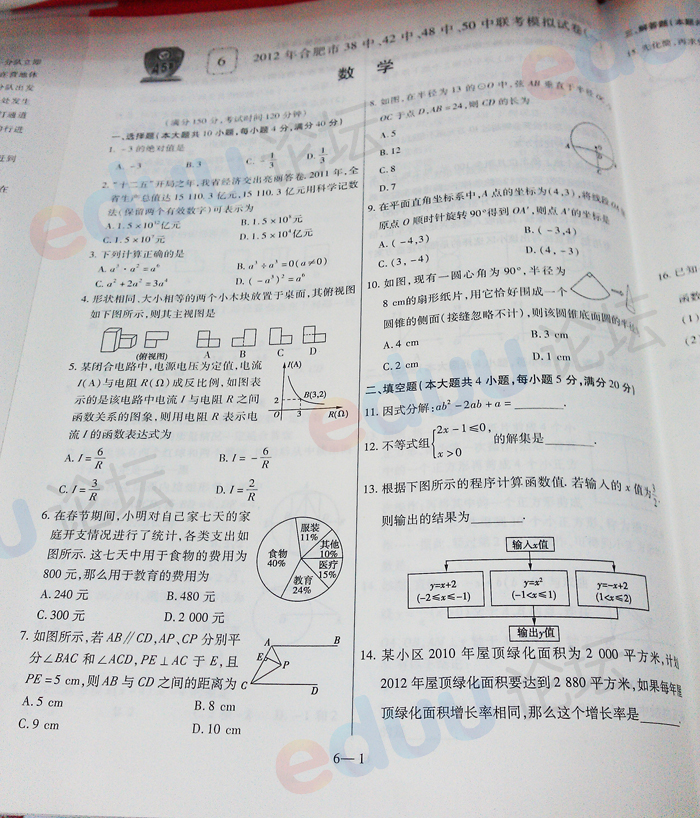 6
2012年合肥市38中、42中、48中、50中联考模拟试卷
数 学
(满分150分,考试时间120分钟)
一、选择题(本大题共10小题,每小题4分,满分40分)
1. -3的绝对值是
A. -3 B. 3 C. -1/3 D. 1/3
2. “十二五”开局之年,我省经济交出亮丽答卷. 2011年,全
省生产总值达15 110.3亿元,15 110.3亿元用科学记数
法(保留两个有效数字)可表示为
A. 1.5×10¹²亿元 B. 1.5×10⁵元
C. 1.5×10⁷元 D. 1.5×10⁴亿元
3. 下列计算正确的是
B. a³÷a³=0(a≠0)
C. a²+2a²=3a⁴ D. (-a³)²=a⁶
4. 形状相同、大小相等的两个小木块放置于桌面,其俯视图
如下图所示,则其主视图是
(俯视图) A B C D
5. 某闭合电路中,电源电压为定值,电流
I(A)与电阻R(Ω)成反比例,如图表
示的是该电路中电流I与电阻R之间
函数关系的图象,则用电阻R表示电
流I的函数表达式为
I(A)
B(3,2)
2
O 3 R(Ω)
A. I=6/R B. I=-6/R
C. I=3/R D. I=2/R
6. 在春节期间,小明对自己家七天的家
庭开支情况进行了统计,各类支出如
图所示. 这七天中用于食物的费用为
800元,那么用于教育的费用为
服装
11%
其他
10%
医疗
15%
教育
24%
食物
40%
A. 240元 B. 480元
C. 300元 D. 2 000元
7. 如图所示,若AB∥CD,AP、CP分别平
分∠BAC和∠ACD,PE⊥AC于E,且
PE=5 cm,则AB与CD之间的距离为
A B
E
P
C D
A. 5 cm B. 8 cm
C. 9 cm D. 10 cm
8. 如图,在半径为13的⊙O中,弦AB垂直于半径
OC于点D,AB=24,则CD的长为
A. 5
B. 12
C. 8
D. 7
9. 在平面直角坐标系中,A点的坐标为(4,3),将线段
原点O顺时针旋转90°得到OA′,则点A′的坐标是
A. (-4,3) B. (-3,4)
C. (3,-4) D. (4,-3)
10. 如图,现有一圆心角为90°,半径为
8 cm的扇形纸片,用它恰好围成一个
圆锥的侧面(接缝忽略不计),则该圆锥底面圆的半径
A. 4 cm B. 3 cm
C. 2 cm D. 1 cm
二、填空题(本大题共4小题,每小题5分,满分20分)
11. 因式分解:ab²-2ab+a=______.
12. 不等式组{2x-1≤0, x>0 的解集是______.
13. 根据下图所示的程序计算函数值. 若输入的x值为3/2,
则输出的结果为______.
输入x值
y=x+2
(-2≤x≤-1)
y=x²
(-1<x≤1)
y=-x+2
(1<x≤2)
输出y值
14. 某小区2010年屋顶绿化面积为2 000平方米,计划
2012年屋顶绿化面积要达到2 880平方米,如果每年屋
顶绿化面积增长率相同,那么这个增长率是______.
6—1
三、解答题(本题
15. 先化简,再求
16. 已知
函数
(1)
(2
分队立即
在营地休
分队出发
处发生
打通道
和行进
到
在
eduu论坛
eduu论坛
eduu论坛
eduu论坛